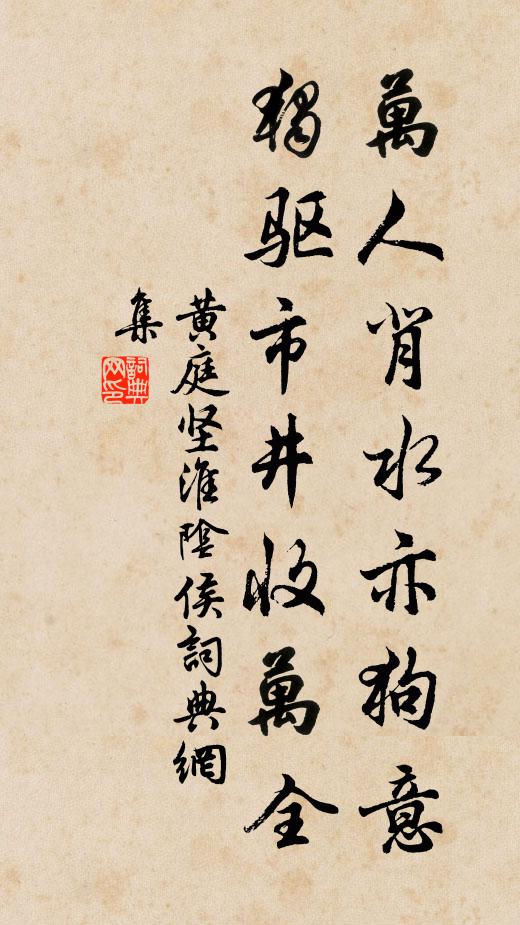 萬人背水亦狗意
獨驱市井收萬全
黄庭坚淮陰侯詞典網
集
詞典网印